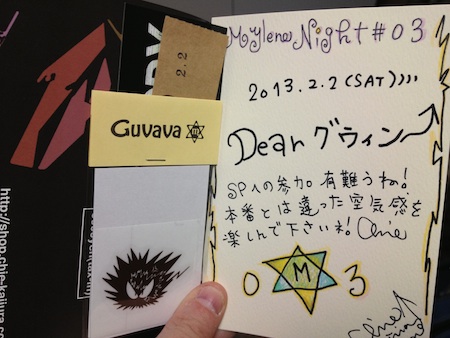 Mylene Night #03
2013.2.2 (SAT)
Dear グウィン
SPへの参加。有難うね!
本番とは違った空気感を
楽しんで下さいね! Chie
0 M 3
2.2
Guvava
http://shop.chie-kajiura.co